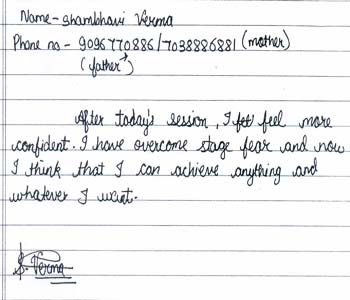 Name - Shambhavi Verma
Phone no - 9096770886/7038886881 (mother)
(father)
After today's session, I feel more
confident. I have overcome stage fear and now
I think that I can achieve anything and
whatever I want.
S. Verma